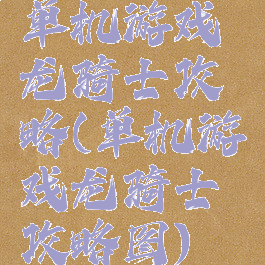 单机游戏
龙骑士攻
略(单机游
戏龙骑士
攻略图)